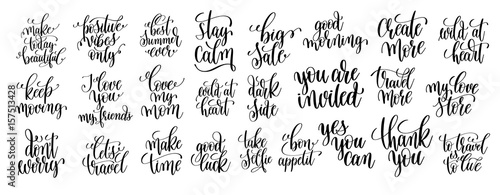 make
today
beautiful
positive
vibes
only
best
summer
ever
stay
calm
big
Sale
good
morning
Create
more
wild at
heart
keep
moving
I love
you
my friends
love
my
mom
wild at
heart
dark
side
you are
invited
travel
more
my love
store
don't
worry
let's
travel
make
time
good
luck
take
selfie
bon
appetit
yes
you
can
thank
you
to travel
is to
live
157513428